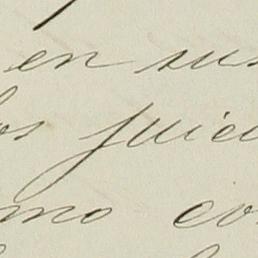 en sus
los juici
mo co